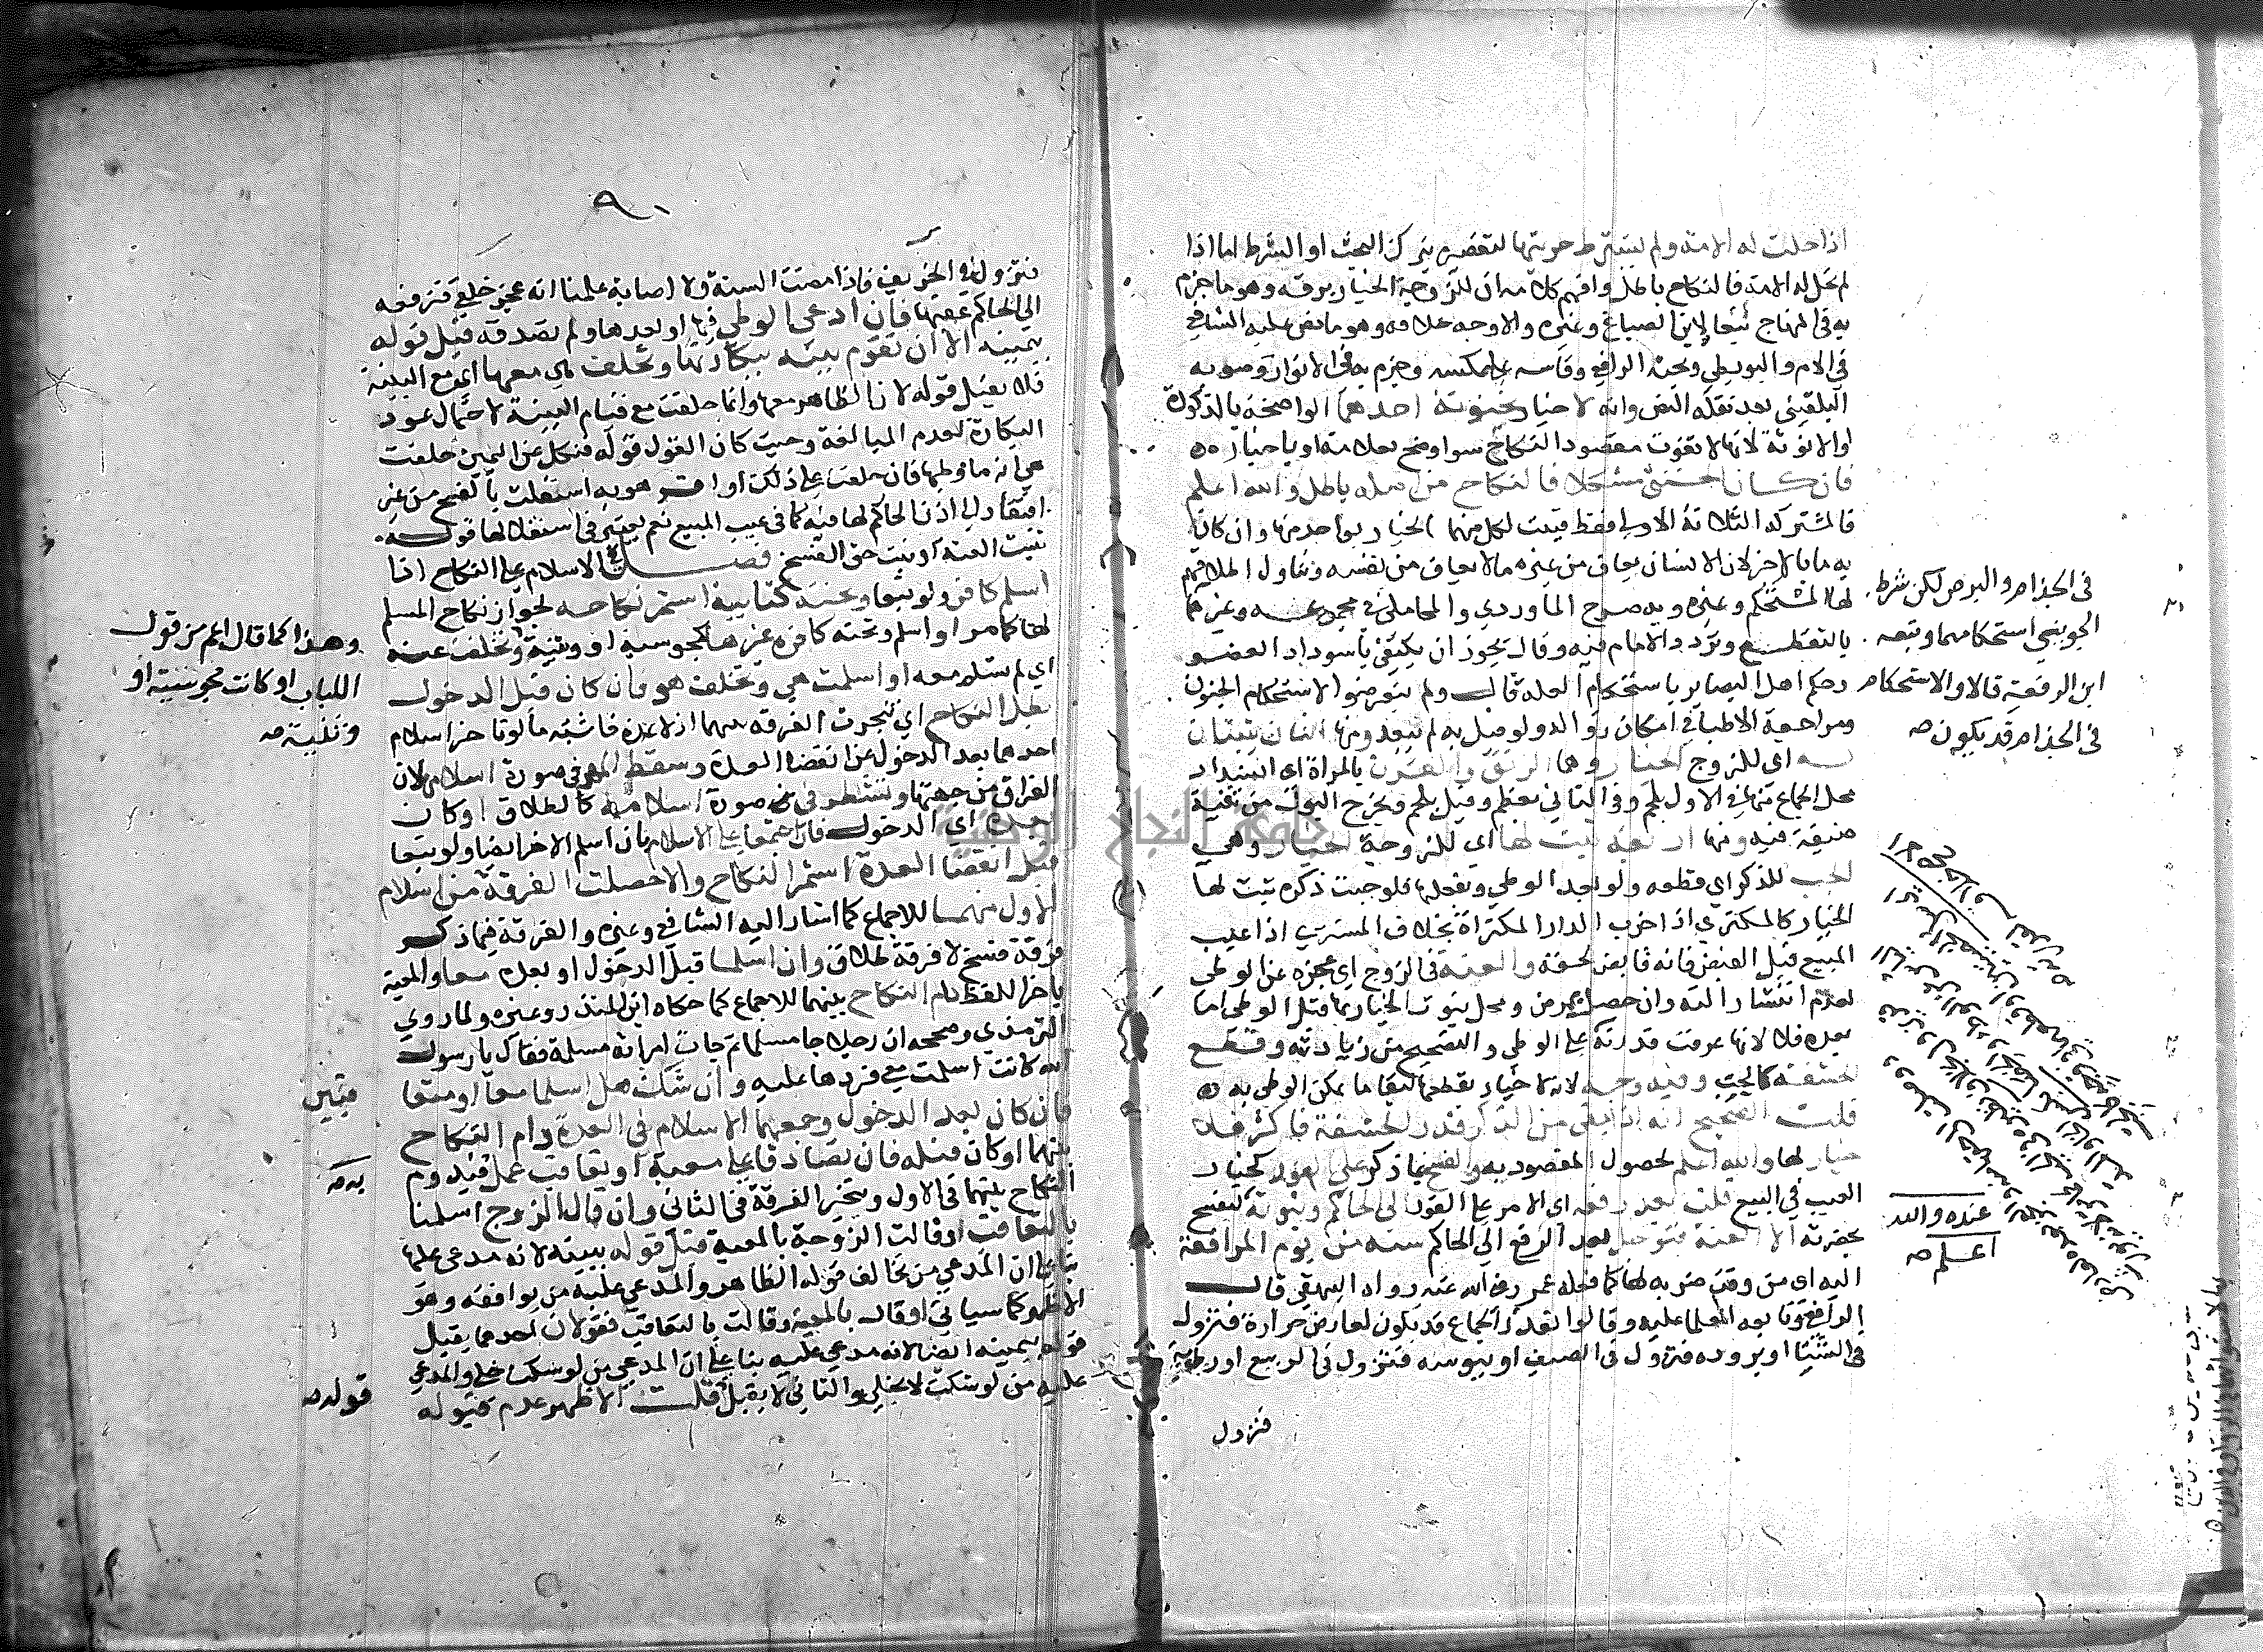 اذا حلت له الامة ولم يشترط حريتها لتقصيره بترك البحث او الشرط اما اذا
لم تحل له الامة فالنكاح باطل وافهم كلامه ان للزوجة الخيار برقه وهو ما جزم
به في المنهاج تبعا لابن الصباغ وغيره والاوجه خلافه وهو ما نص عليه الشافعي
في الام والبويطي وبحثه الرافعي وقاسه على عكسه وجزم به في الانوار وصوبه
البلقيني بعد نقله النص وانه لا خيار بخنوثة احدهما الواضحة بالذكورة
او الانوثة لانها لا تفوت مقصود النكاح سوا وضح بعلامة او باخباره
فان كان الخنثى مشكلا فالنكاح من اصله باطل والله اعلم
فالمشتركه الثلاثة الاولى فقط فيثبت لكل منهما الخيار بواحد منها وان كان
به ما بالاخر لان الانسان يعاف من غيره ما لا يعاف من نفسه وتناول اطلاقهم
لها المستحكم وغيره وبه صرح الماوردي والمحاملي في مجموعه وغيرهما
في الجذام والبرص لكن شرط
الجويني استحكامهما وتبعه
ابن الرفعة قالا والاستحكام
في الجذام قد يكون صه
بالتقطع وتردد الامام فيه وقال يجوز ان يكتفى باسوداد العضو
وحكم اهل البصاير باستحكام العله قال ولم يتعرضوا لاستحكام الجنون
ومراجعة الاطبا في امكان زواله ولو قيل به لم يبعد ومنها اثنان يثبتان
له اي للزوج الخيار وهما الرتق والقرن بالمراة اي انسداد
محل الجماع منها في الاول بلحم وفي الثاني بعظم وقيل بلحم ويخرج البول من ثقبة
ضيقة فيه ومنها اثنان يثبت لها اي للزوجة الخيار وهي
الجب للذكر اي قطعه ولو بعد الوطي وبفعلها فلو جبت ذكره ثبت لها
الخيار كالمكتري اذا خرب الدار المكتراة بخلاف المشتري اذا عيب
المبيع قبل القبض فانه قابض لحقه والعنة في الزوج اي عجزه عن الوطي
لعدم انتشار الته وان حصل بمرض ومحل ثبوت الخيار بها قبل الوطي اما
بعده فلا لانها عرفت قدرته على الوطي والتضحيح من زيادته وقطع
الحشفة كالجب وفيه وجه لانه لا خيار بقطعها لبقا ما يمكن الوطي به
قلت الصحيح انه ان بقي من الذكر قدر الحشفة فاكثر فلا
خيار لها والله اعلم لحصول المقصود به والفسخ بما ذكر على الفور كخيار
العيب في البيع قلت بعد رفعه اي الامر على الفور الى الحاكم وثبوته ليفسخ
بحضرته الا العنة فتؤجل بعد الرفع الى الحاكم سنه من يوم المرافعة
اليه اي من وقت ضربه لها كما فعله عمر رضي الله عنه رواه البيهقي قال
الرافعي وتابعه العلما عليه وقالوا تعذر الجماع قد يكون لعارض حرارة فتزول
في الشتا او بروده فتزول في الصيف او يبوسه فتزول في الربيع او رطوبة
عنده والله
اعلم صه
فتزول
٩٠
فتزول في الخريف فاذا مضت السنة ولا اصابة علمنا انه عجز خلقي فترفعه
الى الحاكم عقبها فان ادعى الوطي فيها او بعدها ولم تصدقه قبل قوله
بيمينه الا ان تقوم بينه ببكارتها وتحلف هي معها اي مع البينة
فلا يقبل قوله لان الظاهر معها وانما حلفت مع قيام البينة لاحتمال عود
البكارة لعدم المبالغة وحيث كان القول قوله فنكل عن اليمين حلفت
هي انه ما وطيها فان حلفت على ذلك او اقر هو به استقلت بالفسخ من غير
افتقار الى اذن الحاكم لها فيه كما في عيب المبيع نعم يعتبر في استقلالها قوله
ثبتت العنة او ثبت حق الفسخ فصل في الاسلام على النكاح اذا
اسلم كافر ولو تبعا وتحته كتابية استمر نكاحه لجواز نكاح المسلم
لها كما مر او اسلم وتحته كافره غيرها كمجوسية او وثنية وتخلفت عنه
وهذا كما قال اعم من قول
اللباب او كانت مجوسية او
وثنية صه
اي لم تسلم معه او اسلمت هي وتخلف هو فان كان قبل الدخول
بطل النكاح اي تنجزت الفرقه بينهما اذ لا عدة فاشبه ما لو تاخر اسلام
احدهما بعد الدخول عن انقضا العدة وسقط المهر في صورة اسلامها لان
الفراق من جهتها ويتشطر في صورة اسلامه كالطلاق او كان
بعده اي الدخول فان اجتمعا على الاسلام بان اسلم الاخر ايضا ولو تبعا
قبل انقضا العدة استمر النكاح والا حصلت الفرقة من اسلام
الاول منهما للاجماع كما اشار اليه الشافعي وغيره والفرقة فيما ذكر
فرقة فسخ لا فرقة طلاق وان اسلما قبل الدخول او بعده معا والمعية
باخر اللفظ دام النكاح بينهما للاجماع كما حكاه ابن المنذر وغيره ولما روي
الترمذي وصححه ان رجلا جا مسلما ثم جات امراته مسلمة فقال يا رسول
الله كانت اسلمت معي فردها عليه وان شك هل اسلما معا او متعا
قبتين
فان كان بعد الدخول وجمعهما الاسلام في العدة دام النكاح
بينهما او كان قبله فان تصادقا على معية او تعاقب عمل فيدوم
به صه
النكاح بينهما في الاول وتنجز الفرقة في الثاني وان قال الزوج اسلمنا
بالتعاقب او قالت الزوجة بالمعية قبل قوله ببينه لانه مدعى عليها
بنا على ان المدعي من تخالف قوله الظاهر والمدعى عليه من يوافقه وهو
الاظهر كما سياتي او قال بالمعية وقالت بالتعاقب فقولان احدهما يقبل
قوله بيمينه ايضا لانه مدعى عليه بنا على ان المدعي من لو سكت خلي والمدعى
عليه من لو سكت لا يخلى والثاني لا يقبل قلت الاظهر عدم قبوله
قوله صه